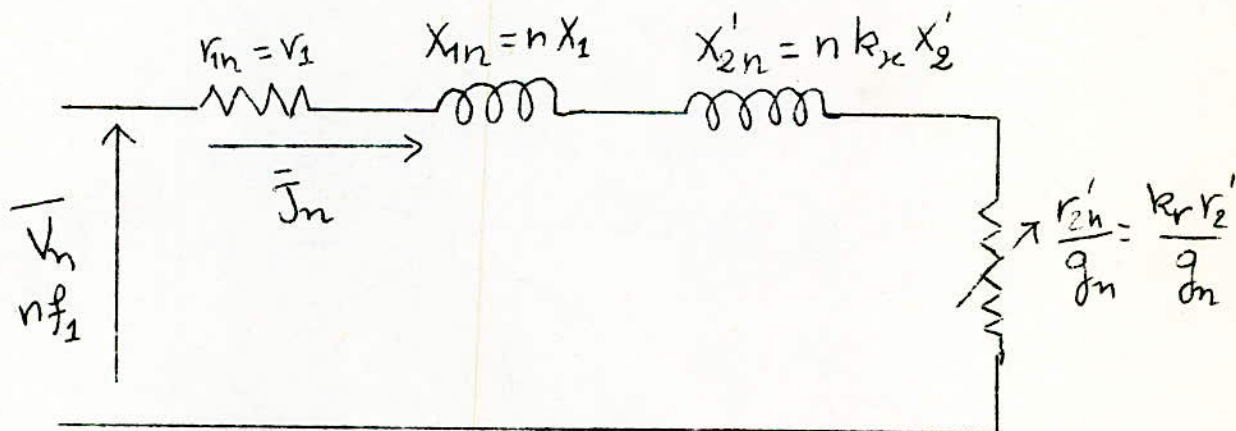 r₁ₙ = r₁
X₁ₙ = n X₁
X'₂ₙ = n kₓ X'₂
J̅ₙ
V̅ₙ
n f₁
r'₂ₙ / gₙ = kᵣ r'₂ / gₙ